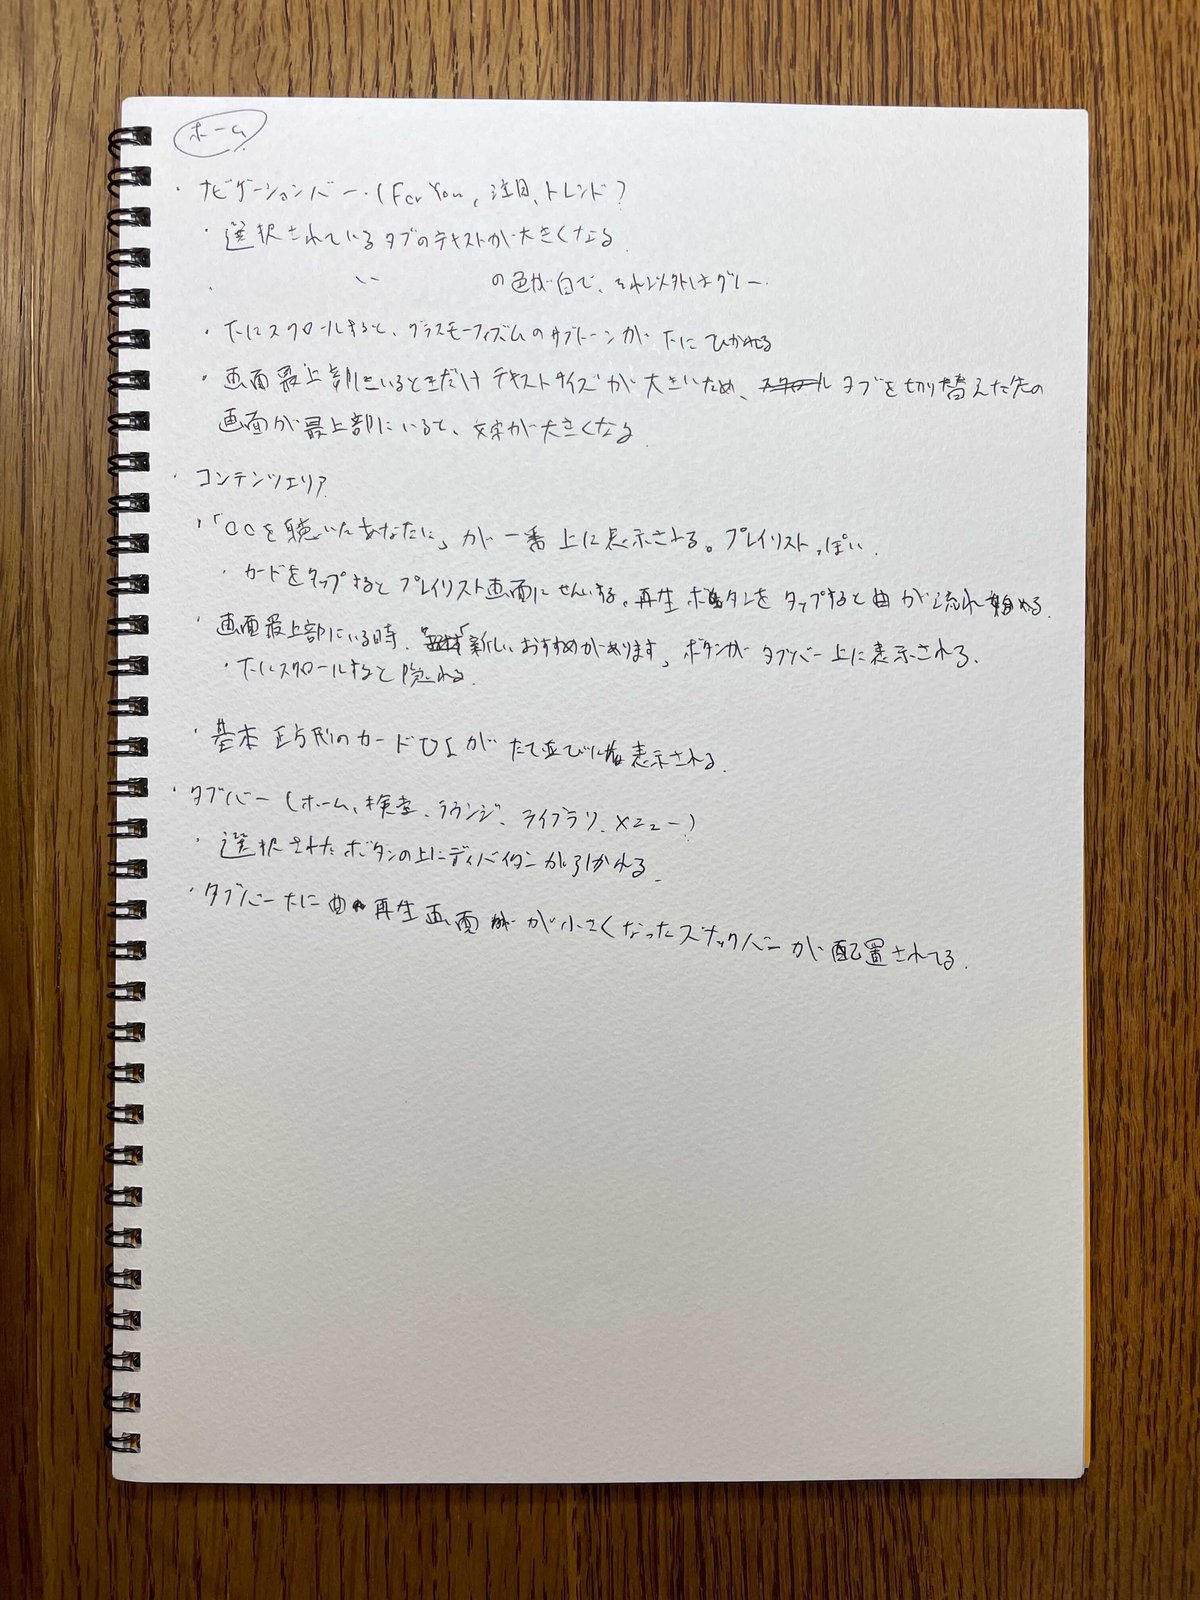 ホーム
・ナビゲーションバー（For You、注目、トレンド）
・選択されているタブのテキストが大きくなる
・ 〃 の色が白で、それ以外はグレー
・下にスクロールすると、グラスモーフィズムの が下にひかれる
・画面最上部にいるときだけテキストサイズが大きいため、タブを切り替えた先の
画面が最上部にいると、文字が大きくなる
・コンテンツエリア
・「○○を聴いたあなたに」が一番上に表示される。プレイリストっぽい.
・カードをタップするとプレイリスト画面にせんいする。再生ボタンをタップすると曲が流れ始める.
・画面最上部にいる時、「新しいおすすめがあります」ボタンがタブバー上に表示される.
・下にスクロールすると隠れる.
・基本正方形のカードUIがたて並びに表示される.
・タブバー（ホーム、検索、ラウンジ、ライブラリ、メニュー）
・選択されたボタンの上にディバイダーが引かれる
・タブバー下に曲再生画面が小さくなったスナックバーが配置されてる.